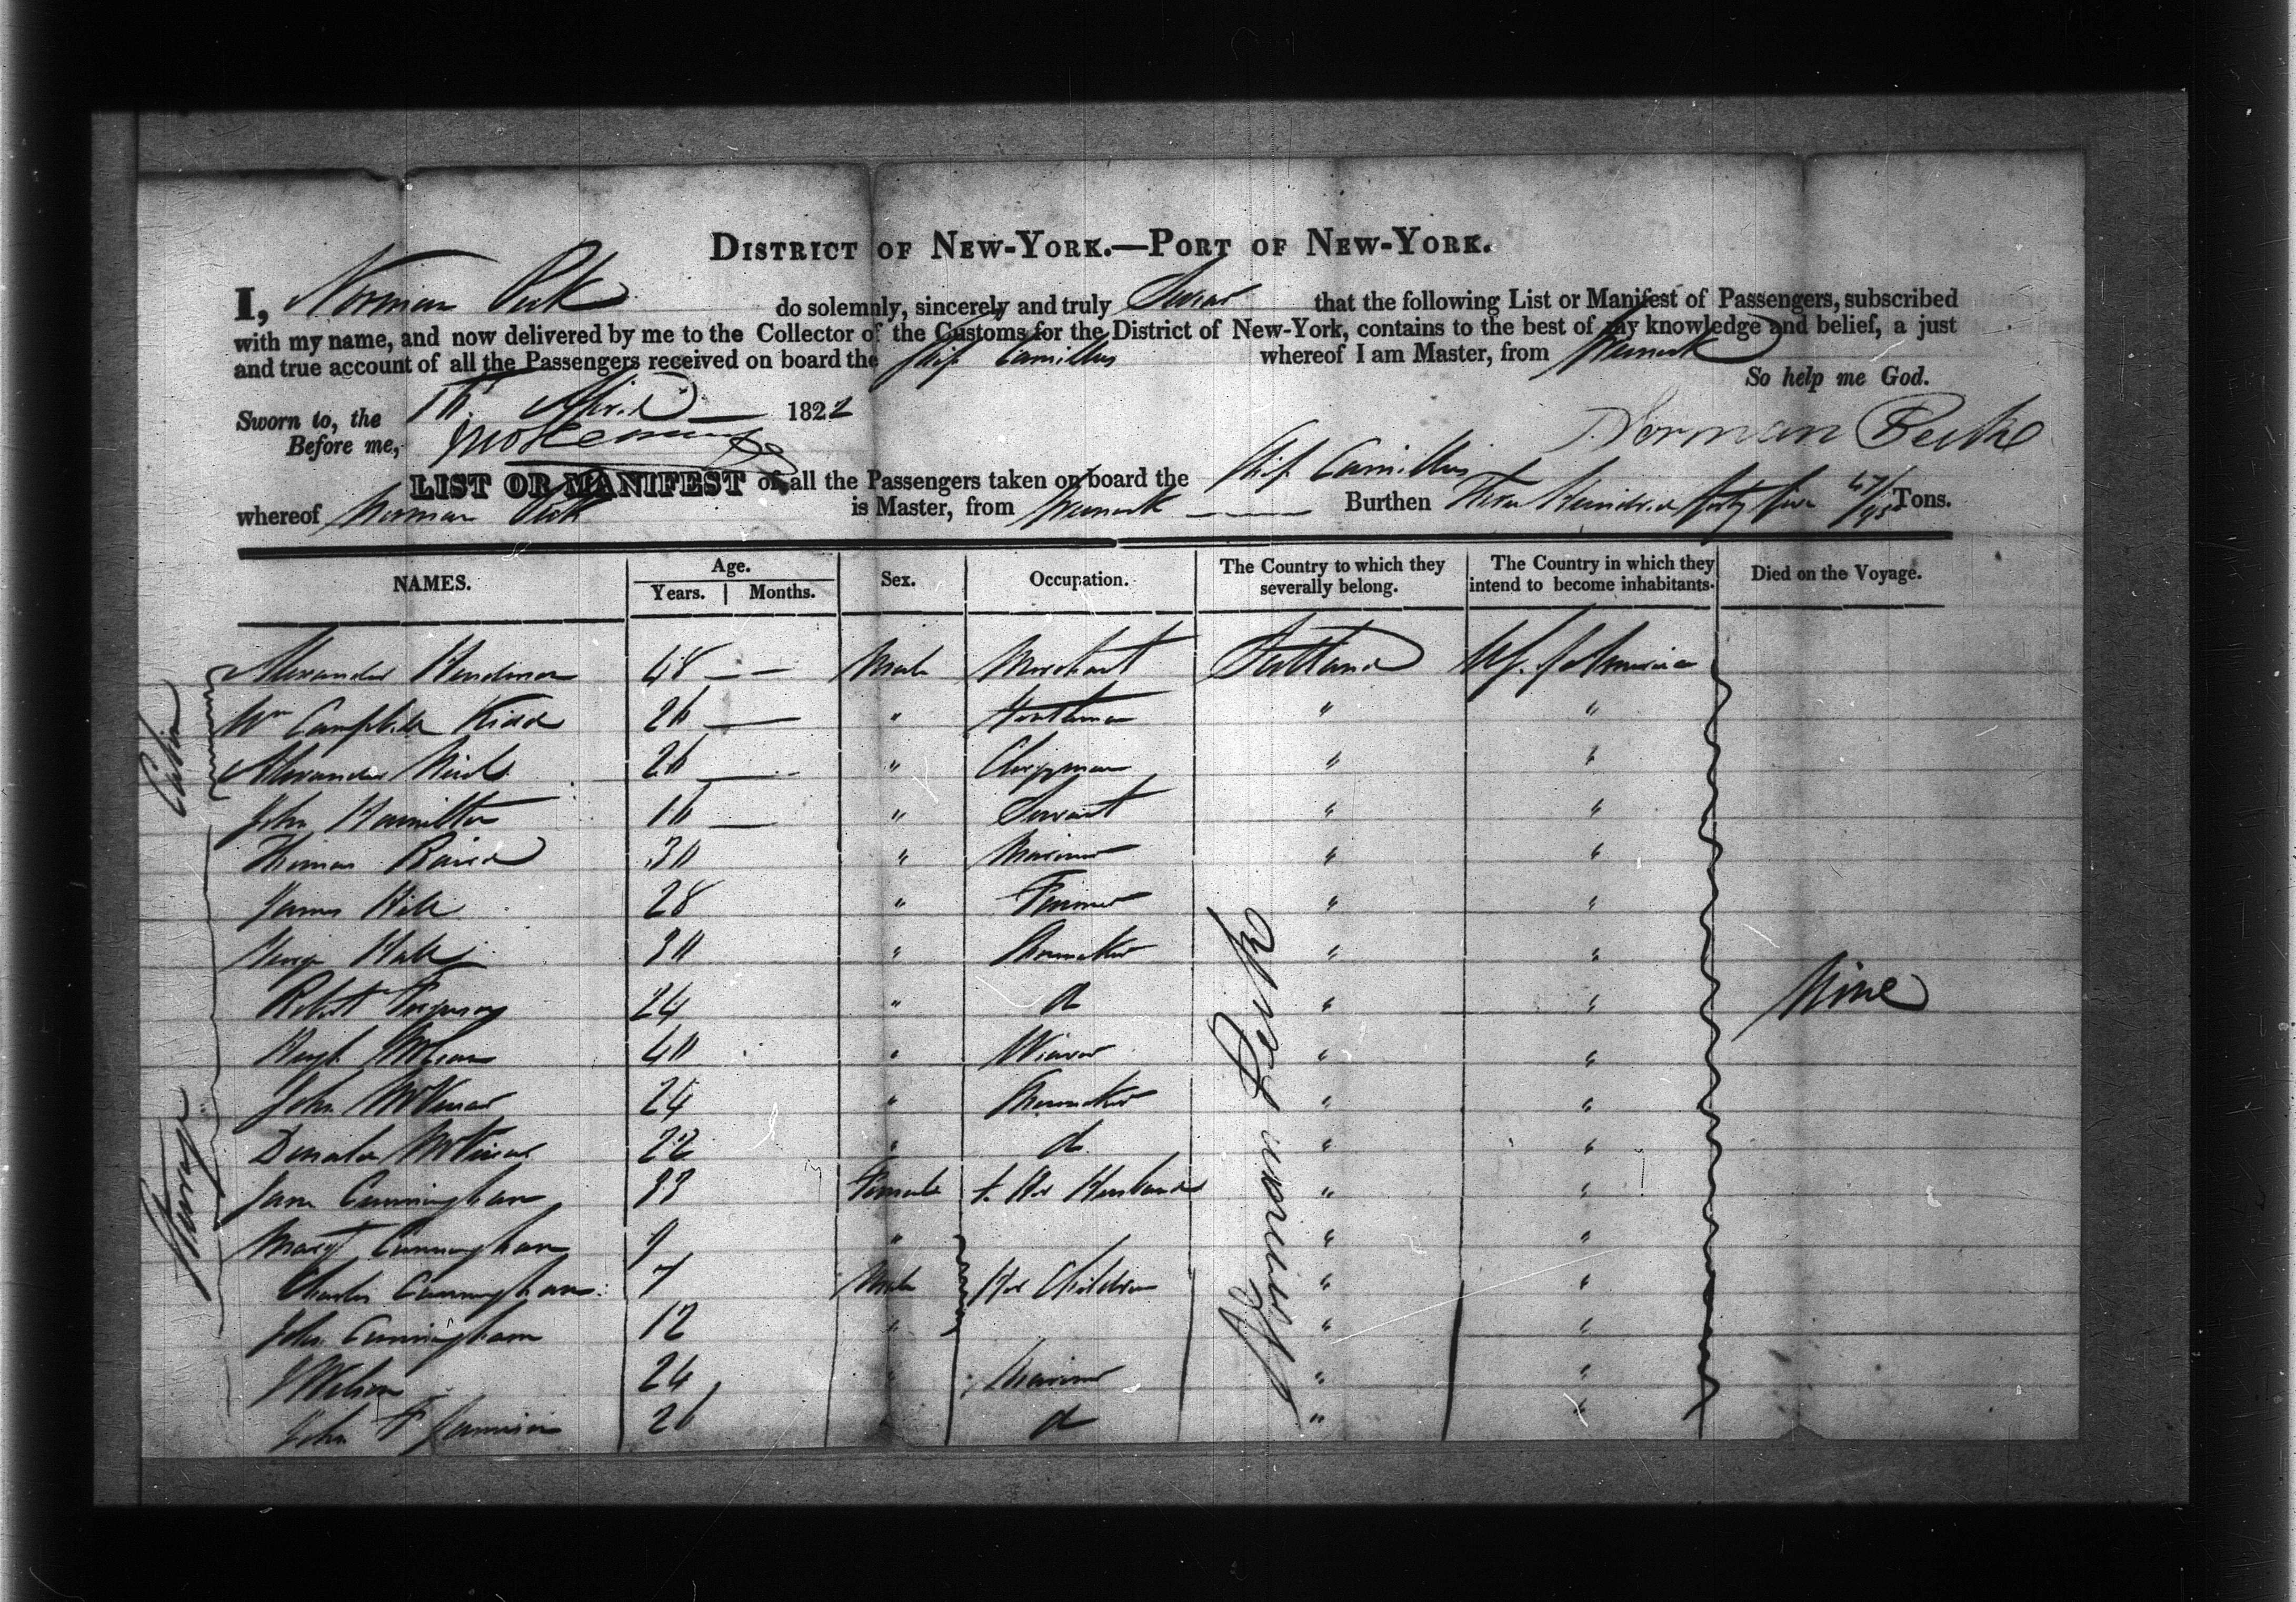 DISTRICT OF NEW-YORK.—PORT OF NEW-YORK.
I, Norman Peck do solemnly, sincerely and truly Swear that the following List or Manifest of Passengers, subscribed
with my name, and now delivered by me to the Collector of the Customs for the District of New-York, contains to the best of my knowledge and belief, a just
and true account of all the Passengers received on board the Ship Camillus whereof I am Master, from Greenock
So help me God.
Sworn to, the April 1822
Before me, Norman Peck
LIST OR MANIFEST of all the Passengers taken on board the Ship Camillus
whereof Norman Peck is Master, from Greenock Burthen Three Hundred forty five 47/95 Tons.
NAMES. Age. Years. Months. Sex. Occupation. The Country to which they severally belong. The Country in which they intend to become inhabitants. Died on the Voyage.
Cabin
Alexander Henderson 48 — — Male Merchant Scotland U. S. of America
Wm Campbell Kidd 26 — " Gentleman " "
Alexander 26 — " Clergyman " "
John Hamilton 16 — " Servant " "
Thomas Baird 30 " Mariner " "
James Hill 28 " Farmer " "
George 30 " Shoemaker " "
Robert Ferguson 24 " do " " None
Hugh 40 " Weaver " "
John 24 " Shoemaker " "
Donald 22 " do " "
Jane Cunningham 33 Female to Her Husband " "
Margt Cunningham 9 " " "
Charles Cunningham 7 Male Her Children " "
John Cunningham 12 " " "
J Wilson 24 " Mariner " "
John 26 do " "
Steerage
Norman Peck